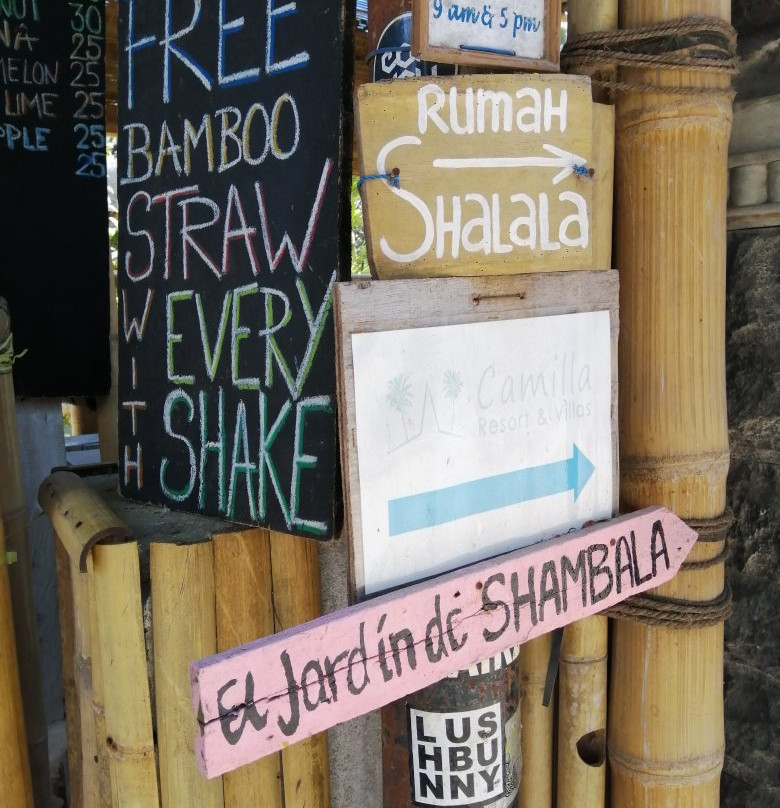 30
25
MELON 25
LIME 25
25
25
FREE
BAMBOO
STRAW
WITH
EVERY
SHAKE
9 am & 5 pm
RUMAH
SHALALA
Camilla
Resort & Villas
El Jardín de SHAMBALA
LUS
HBU
NNY